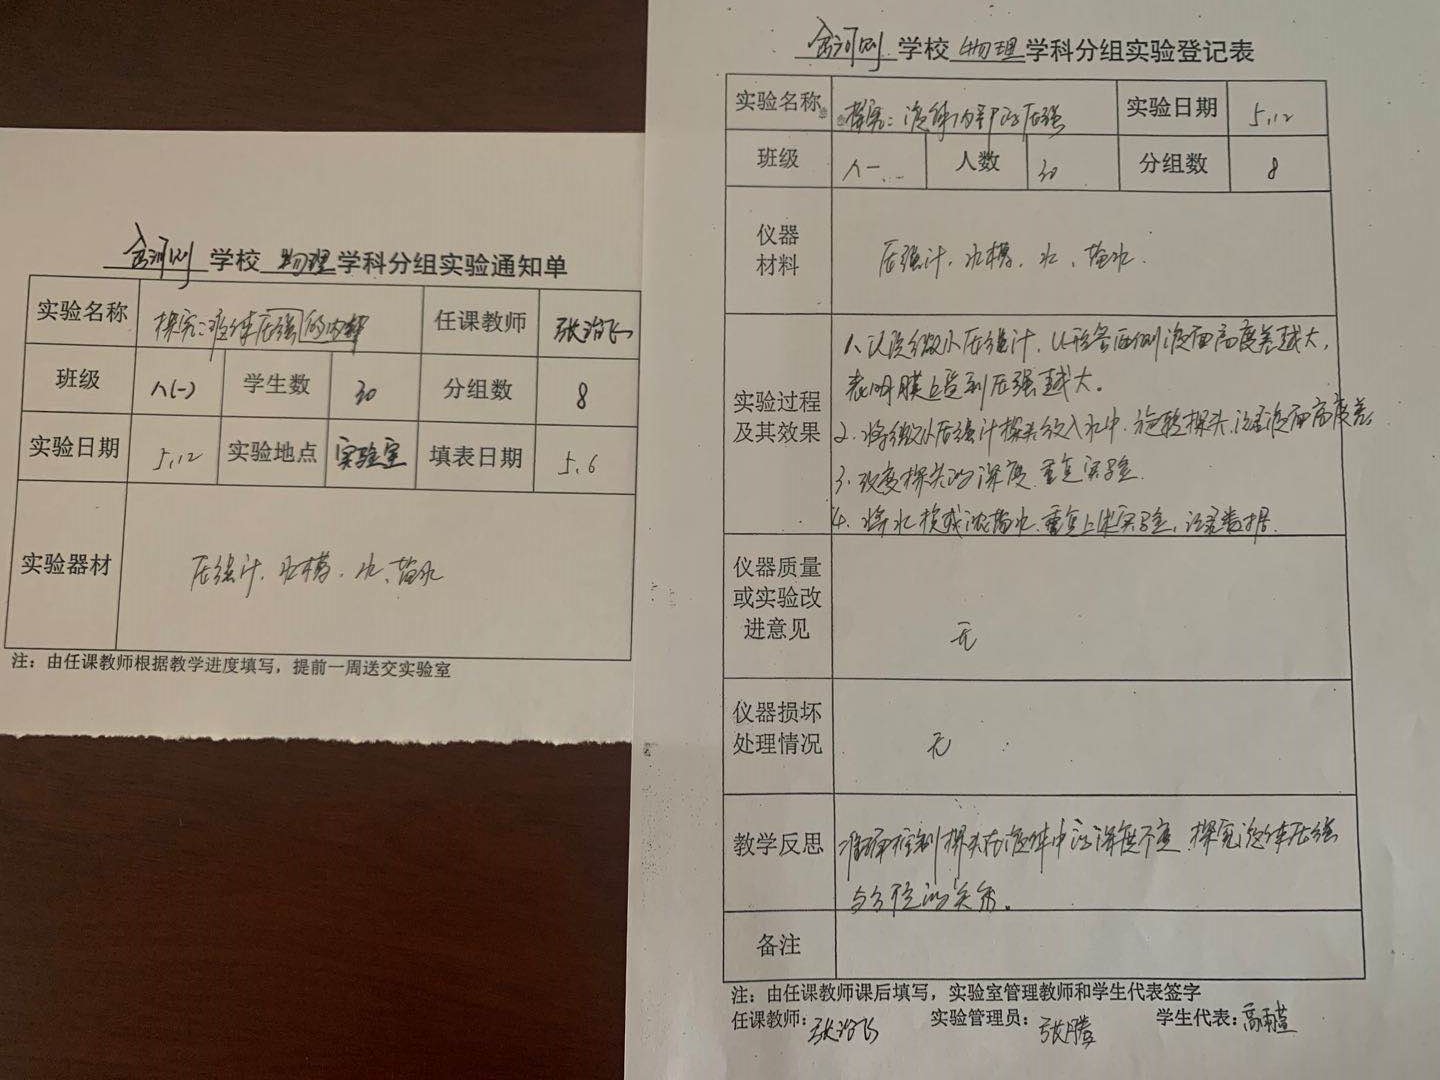 学校 物理 学科分组实验通知单
实验名称 探究:液体压强的内部 任课教师 张治飞
班级 八(一) 学生数 30 分组数 8
实验日期 5.12 实验地点 实验室 填表日期 5.6
实验器材 压强计、水槽、水、盐水
注：由任课教师根据教学进度填写，提前一周送交实验室
学校 物理 学科分组实验登记表
实验名称 探究:液体内部的压强 实验日期 5.12
班级 八一 人数 30 分组数 8
仪器
材料
压强计、水槽、水、盐水.
实验过程
及其效果
1、认识微小压强计，U形管两侧液面高度差越大，
表明膜上受到压强越大。
2、将微小压强计探头放入水中，旋转探头，记录液面高度差
3、改变探头的深度，重复实验
4、将水换成浓盐水，重复上述实验，记录数据.
仪器质量
或实验改
进意见
无
仪器损坏
处理情况
无
教学反思
准确控制探头在液体中的深度不变，探究液体压强
与方位的关系。
备注
注：由任课教师课后填写，实验室管理教师和学生代表签字
任课教师：张治飞 实验管理员：张腾 学生代表：高雨